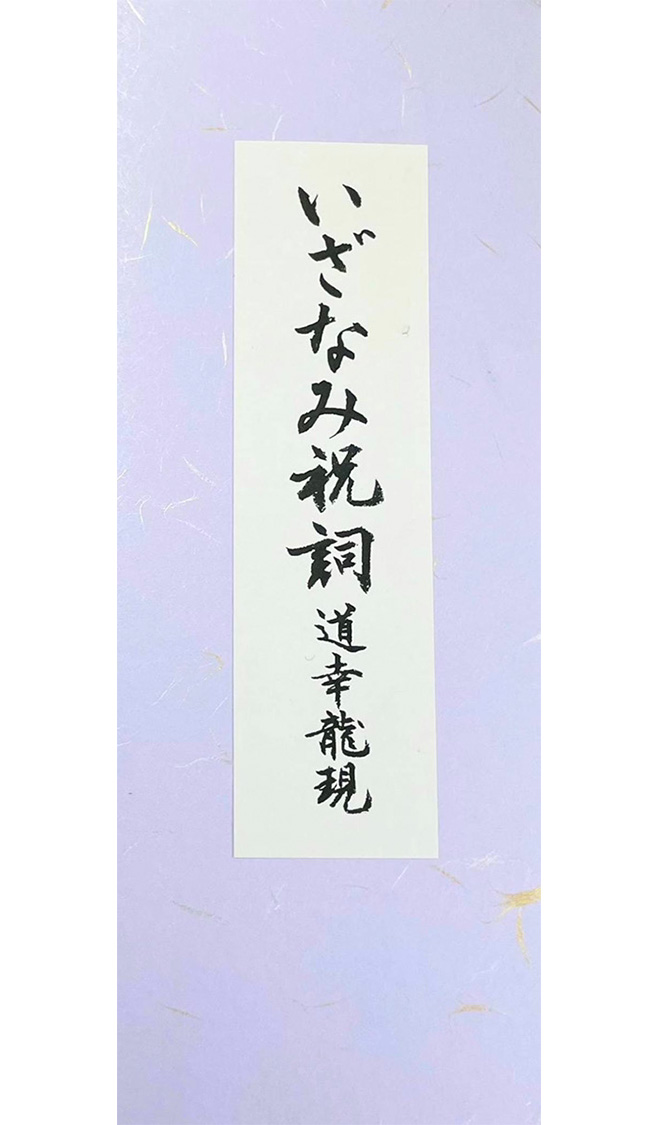 いざなみ祝詞 道幸龍現